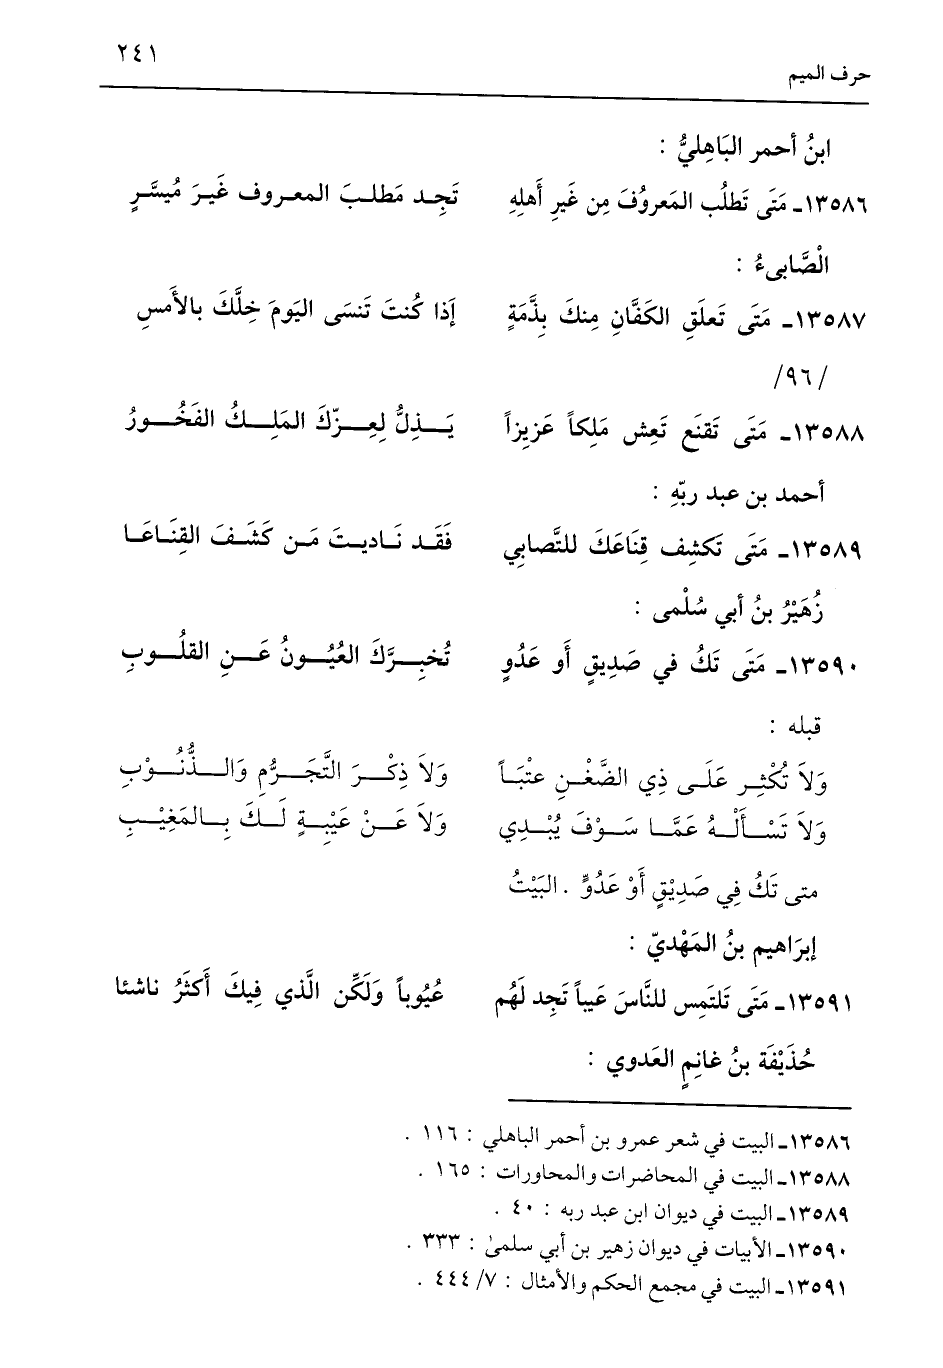 ٢٤١
حرف الميم
ابنُ أحمر البَاهِليُّ :
١٣٥٨٦ـ مَتَى تَطلُب المَعروُفَ مِن غَيرِ أَهلِهِ تَجِد مَطلبَ المعروف غَيرَ مُيسَّرِ
الْصَّابىءُ :
١٣٥٨٧ـ مَتَى تَعلَقِ الكَفَّانِ مِنكَ بِذَّمَةٍ إَذا كُنتَ تَنسَى اليَومَ خِلَّكَ بالأَمسِ
/٩٦/
١٣٥٨٨ـ مَتَى تَقنَع تَعِش مَلِكاً عَزِيزاً يَذِلُّ لِعِزّكَ المَلِكُ الفَخُورُ
أحمد بن عبد ربّهِ :
١٣٥٨٩ـ مَتَى تَكشِف قِنَاعَكَ للتَّصابِي فَقَد نَاديتَ مَن كَشَفَ القِنَاعَا
زُهَيْرُ بنُ أبي سُلْمى :
١٣٥٩٠ـ مَتَى تَكُ في صَدِيقٍ أَو عَدُوٍ تُخبِرَّكَ العُيُونُ عَنِ القلُوبِ
قبله :
وَلاَ تُكْثِر عَلَى ذِي الضَّغْنِ عتْبَاً وَلاَ ذِكْرَ التَّجَرُّمِ وَالذُّنُوْبِ
وَلاَ تَسْأَلْهُ عَمَّا سَوْفَ يُبْدِي وَلاَ عَنْ عَيْبَةٍ لَكَ بِالمَغِيْبِ
متى تَكُ فِي صَدِيْقٍ أَوْ عَدُوٍّ . البَيْتُ
إبرَاهيم بنُ المَهْديّ :
١٣٥٩١ـ مَتَى تَلتَمِس للنَّاسَ عَيباً تَجِد لَهُم عُيُوباً وَلَكِّن الَّذي فِيكَ أَكثَرُ ناشئا
حُذَيْفَة بنُ غانِمٍ العَدوي :
١٣٥٨٦ـ البيت في شعر عمرو بن أحمر الباهلي : ١١٦ .
١٣٥٨٨ـ البيت في المحاضرات والمحاورات : ١٦٥ .
١٣٥٨٩ـ البيت في ديوان ابن عبد ربه : ٤٠ .
١٣٥٩٠ـ الأبيات في ديوان زهير بن أبي سلمىٰ : ٣٣٣ .
١٣٥٩١ـ البيت في مجمع الحكم والأمثال : ٤٤٤/٧ .